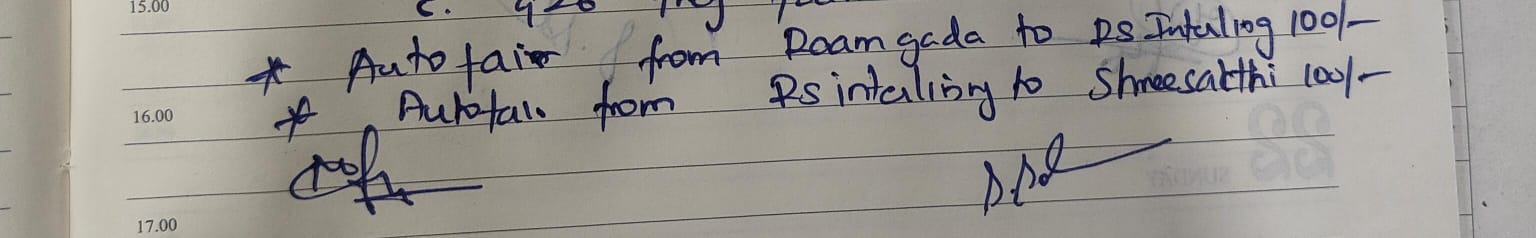 15.00
C. 420
* Auto fair from Roamgada to RS Intaling 100/-
16.00
* Autofair from RS intaling to Shreesakthi 100/-
17.00